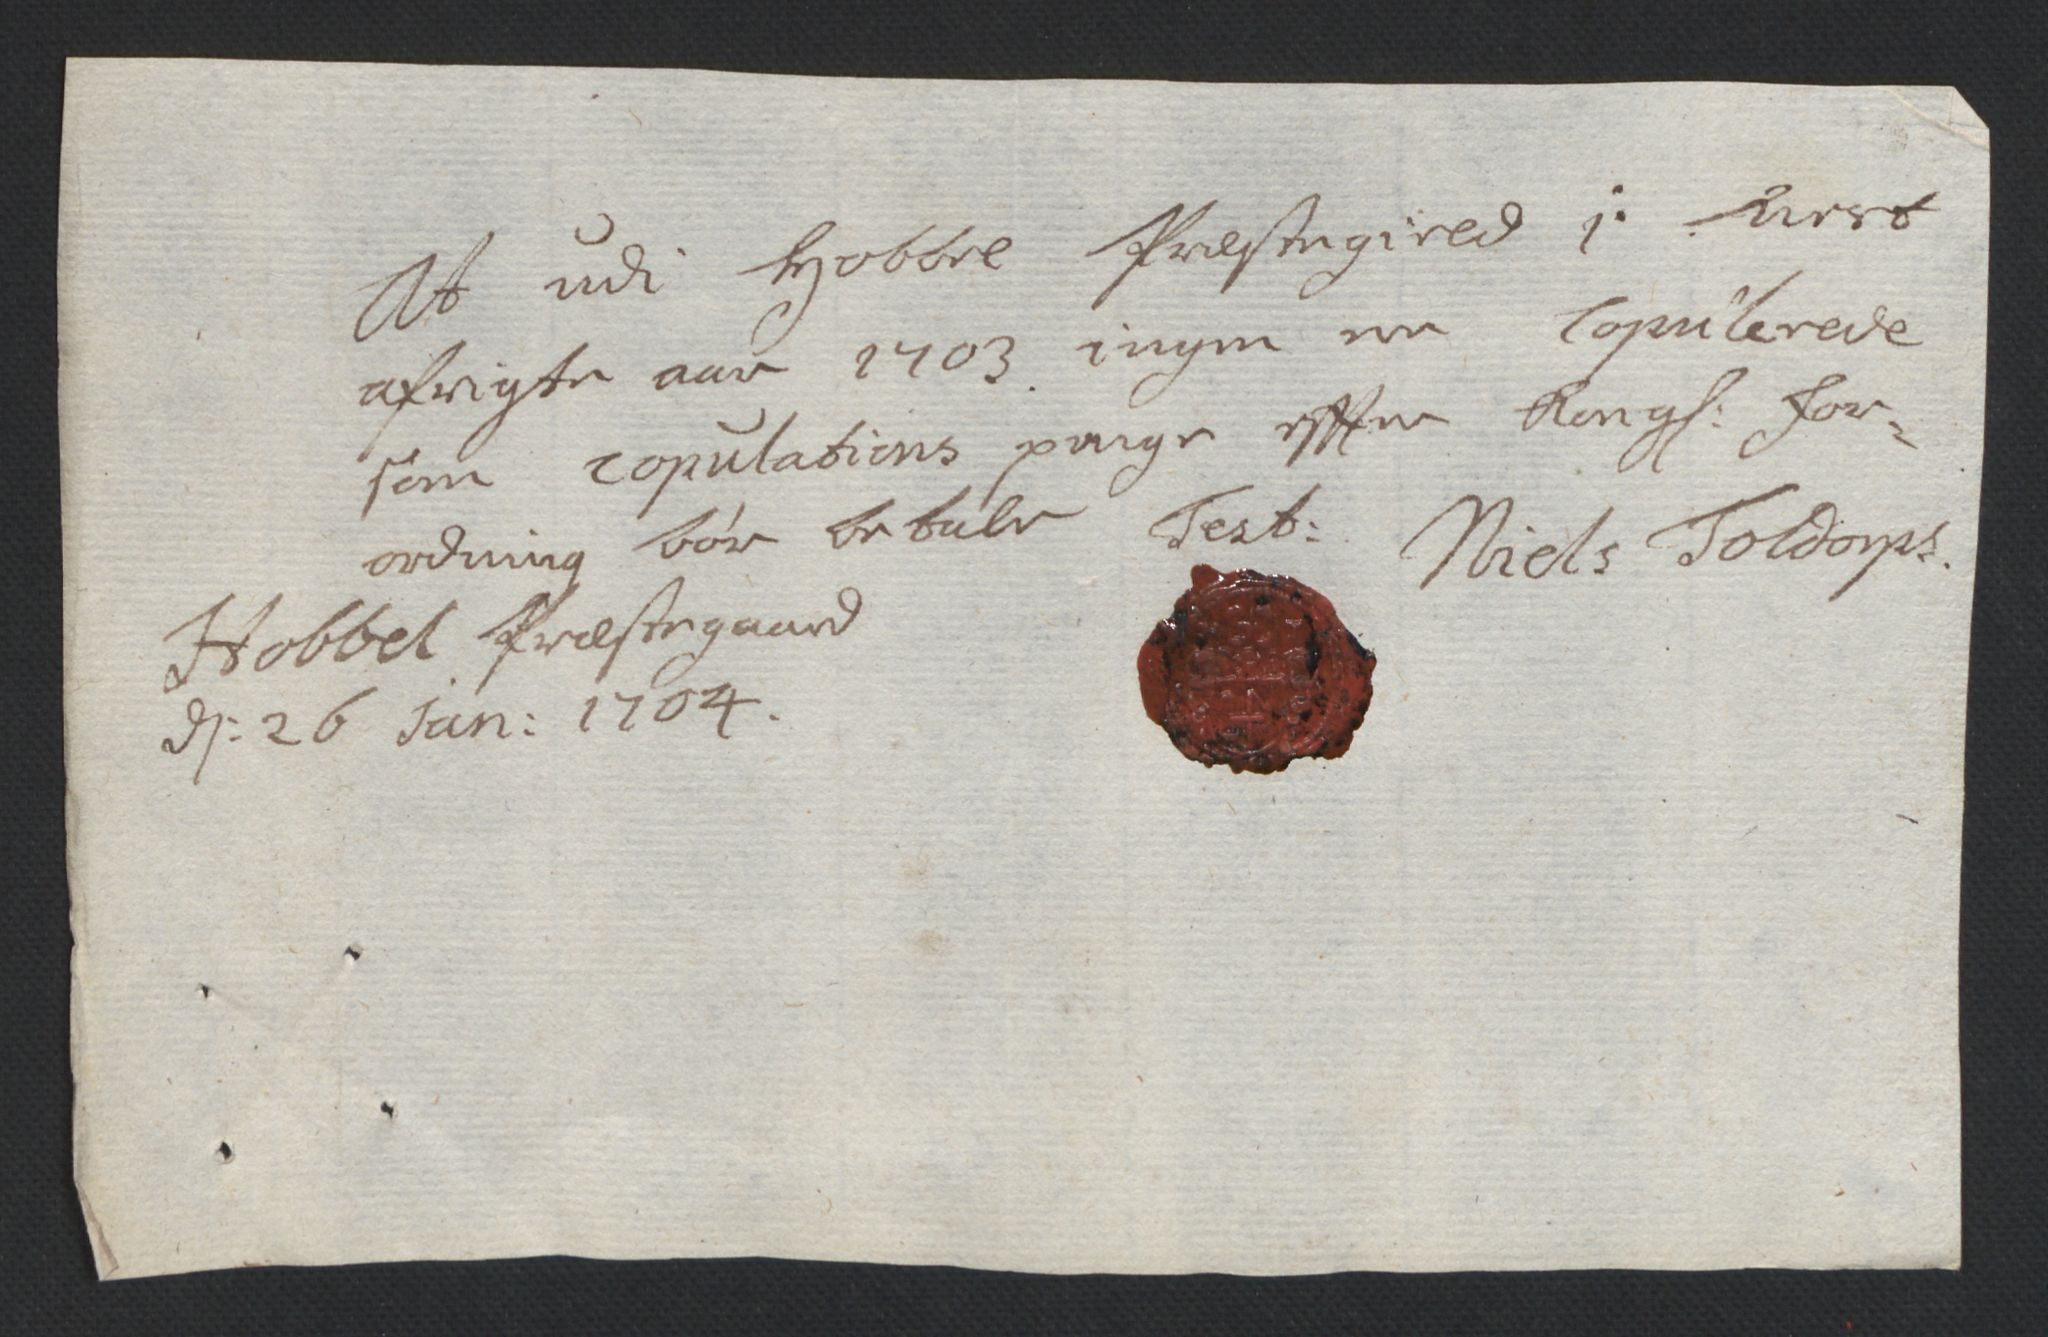 At udi Hobbel Præstegield i næst
afvigte aar 1703 ingen er Copulerede
som copulations penge efter Kongl: For-
ordning bør betale Test: Niels Toldorph.
Hobbel Præstegaard
dj: 26 Jan: 1704.